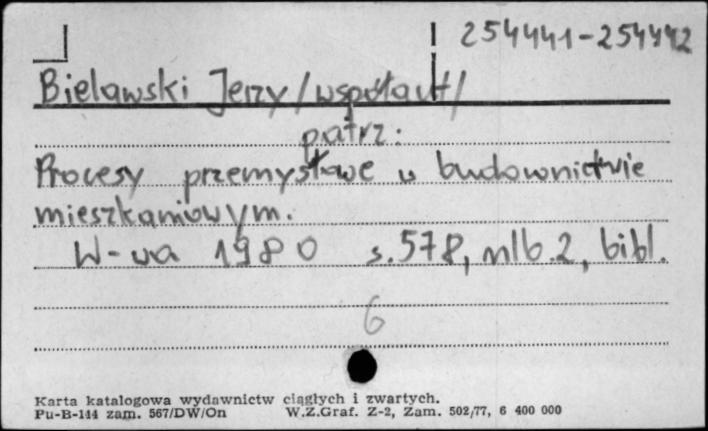 254441-254442
Bielawski Jerzy /współaut/
patrz:
Procesy przemysłowe w budownictwie
mieszkaniowym.
W-wa 1980 s.578, nlb.2, bibl.
6
Karta katalogowa wydawnictw ciągłych i zwartych.
Pu-B-144 zam. 567/DW/On W.Z.Graf. Z-2, Zam. 502/77, 6 400 000